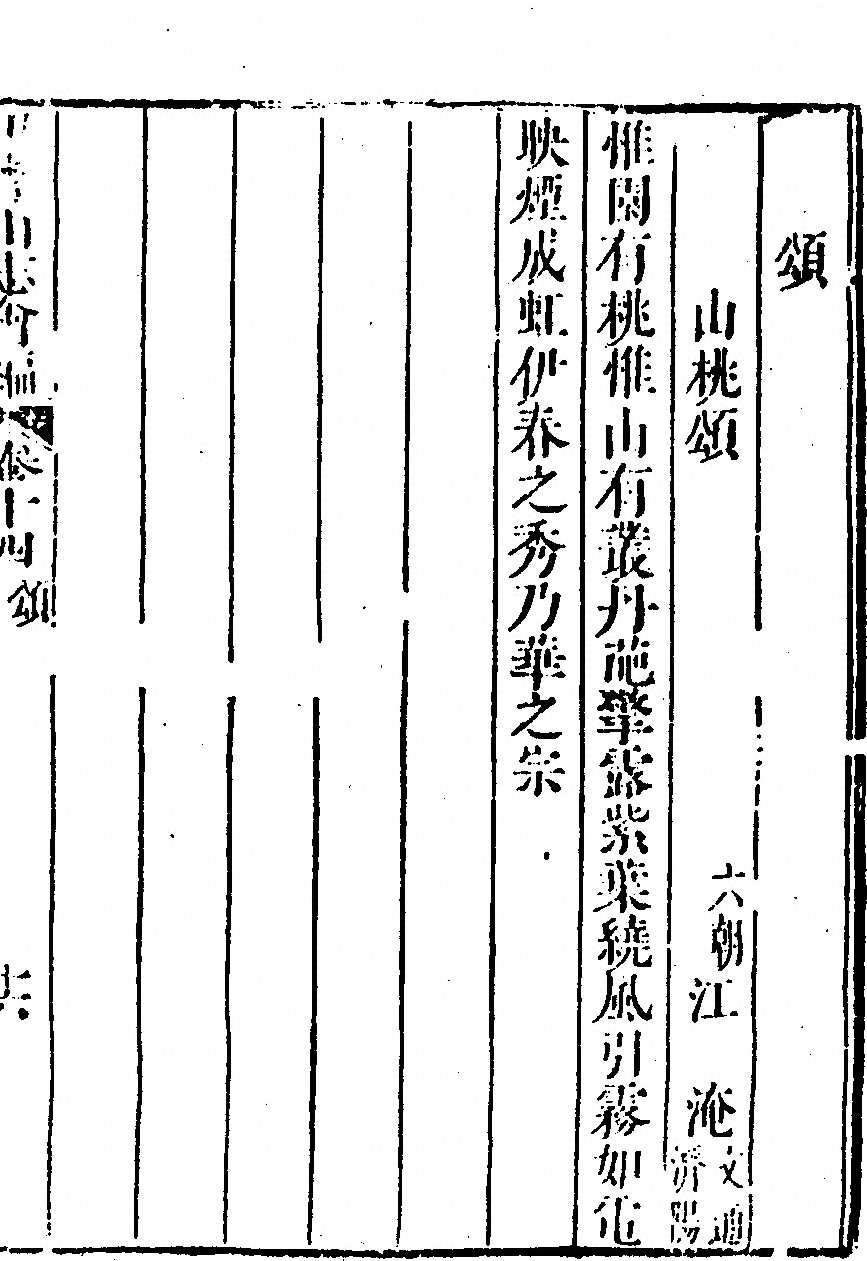 頌
山桃頌
六朝江淹文通濟陽
惟園有桃惟山有叢丹葩擎露紫葉繞風引霧如電
映煙成虹伊春之秀乃華之宗
山志 卷十四 頌